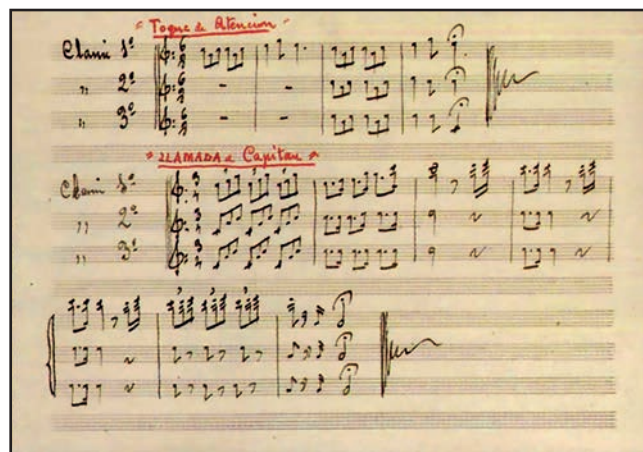 "Toque de Atencion"
Clarin 1º
" 2º
" 3º
"LLAMADA a Capitan"
Clarin 1º
" 2º
" 3º